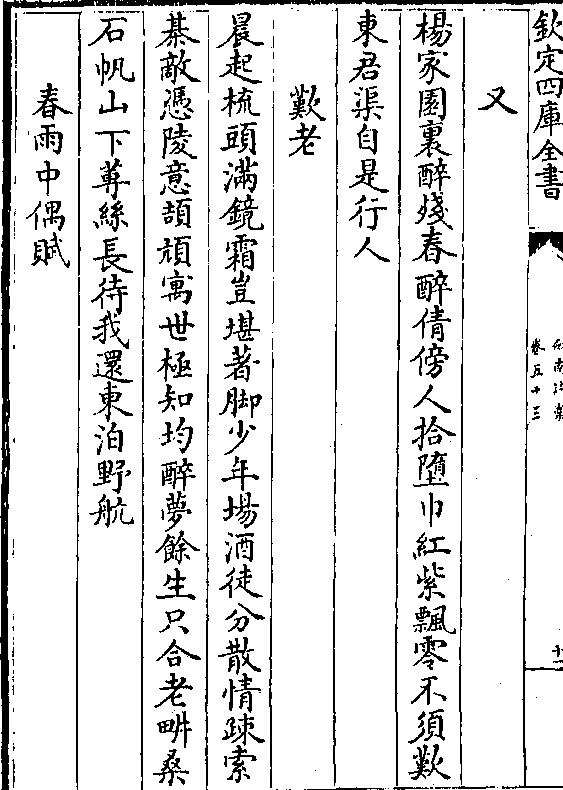 欽定四庫全書
卷五十三
又
楊家園裏醉殘春醉倩傍人拾墮巾紅紫飄零不須歎
東君渠自是行人
歎老
晨起梳頭滿鏡霜豈堪著脚少年場酒徒分散情疎索
棊敵憑陵意頡頏寓世極知均醉夢餘生只合老畊桑
石帆山下蓴絲長待我還東泊野航
春雨中偶賦